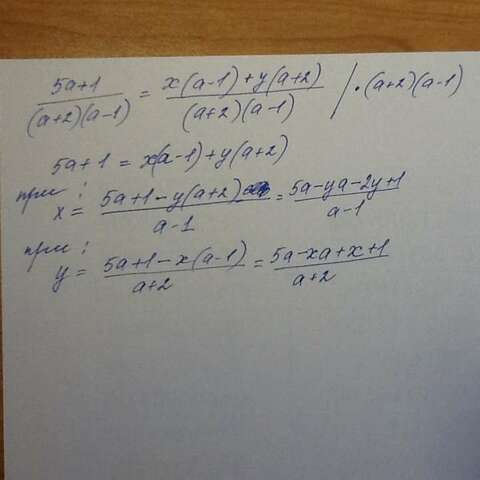 5a+1/(a+2)(a-1) = x(a-1)+y(a+2)/(a+2)(a-1) / · (a+2)(a-1)
5a+1 = x(a-1)+y(a+2)
при:
x = 5a+1-y(a+2)/a-1 = 5a-ya-2y+1/a-1
при:
y = 5a+1-x(a-1)/a+2 = 5a-xa+x+1/a+2